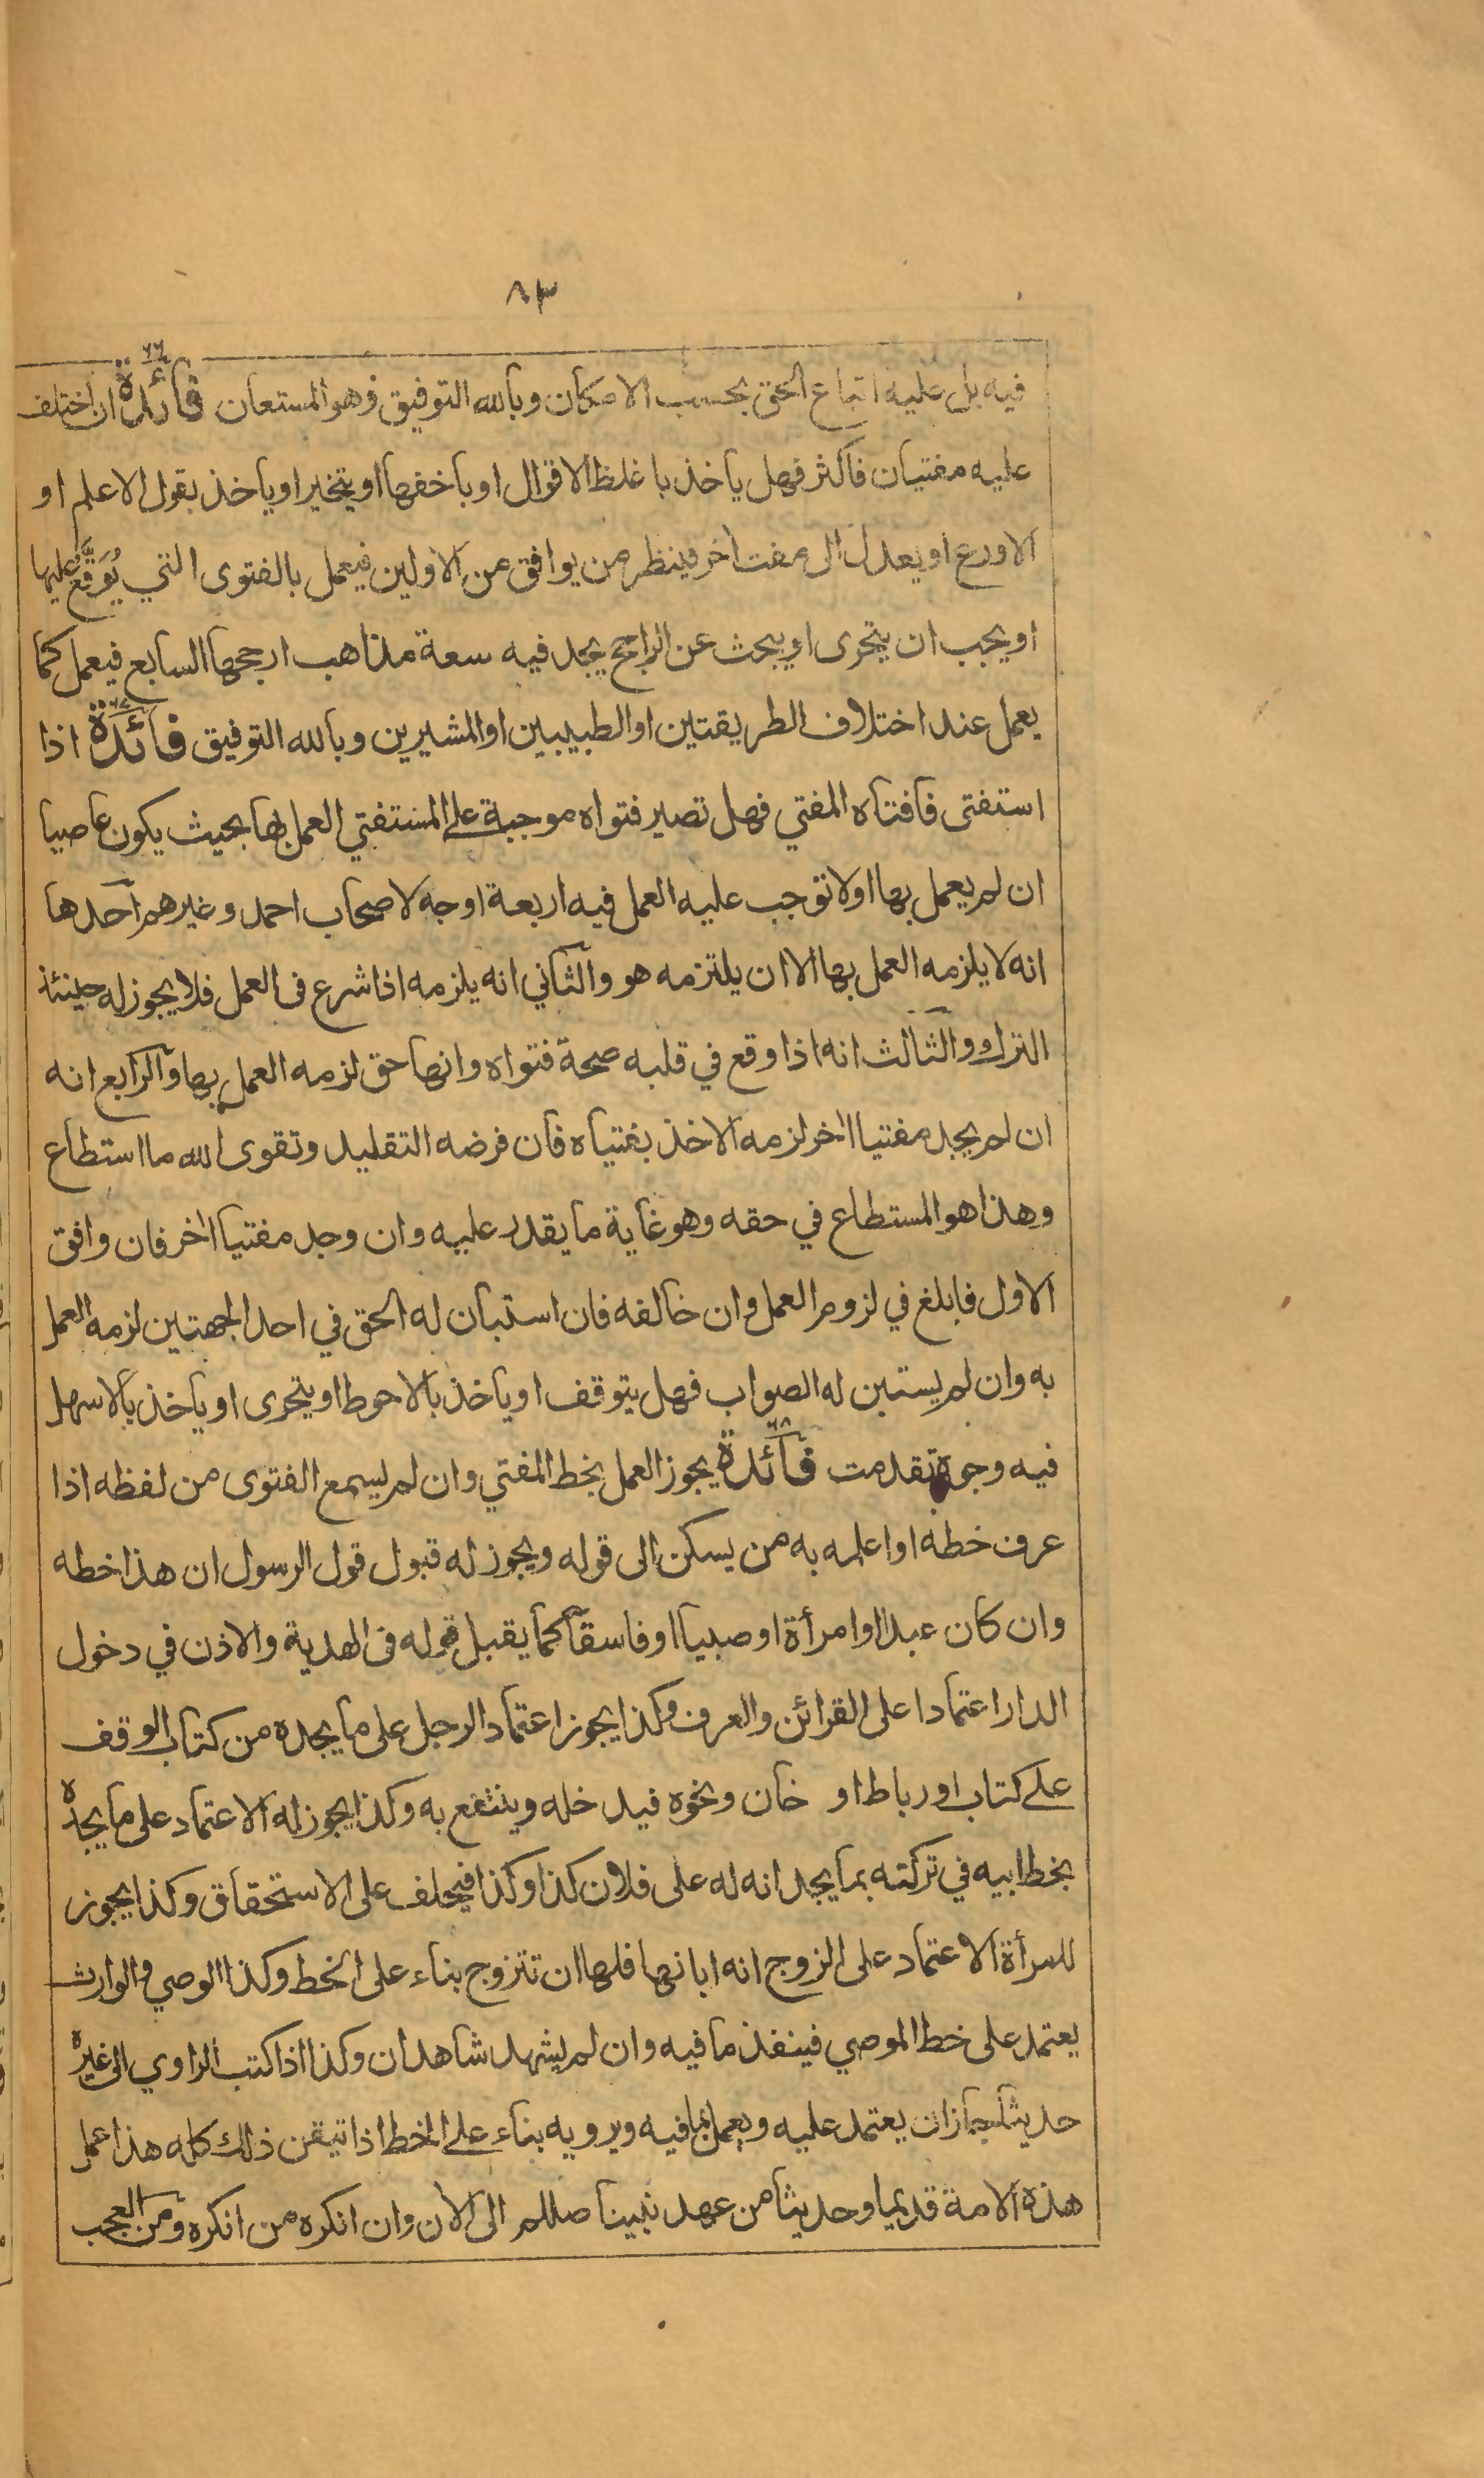 ٨٣
٦٦
فيه بل عليه اتباع الحق بحسب الامكان وبالله التوفيق وهو المستعان فائدة ان اختلف
عليه مفتيان فاكثر فهل ياخذ باغلظ الاقوال او باخفها او يتخير او ياخذ بقول الاعلم او
الاورع او يعدل الى مفت اخر فينظر من يوافق من الاولين فيعمل بالفتوى التي يُوَقَّع عليها
او يجب ان يتحرى او يبحث عن الراجح يجد فيه سعة مذاهب ارجحها السابع فيعمل كما
يعمل عند اختلاف الطريقتين او الطبيبين او المشيرين وبالله التوفيق فائدة ٦٧ اذا
استفتى فافتاه المفتي فهل تصير فتواه موجبة على المستفتي العمل بها بحيث يكون عاصيا
ان لم يعمل بها اولا توجب عليه العمل فيه اربعة اوجه لاصحاب احمد وغيرهم احدها
انه لا يلزمه العمل بها الا ان يلتزمه هو والثاني انه يلزمه اذا شرع فى العمل فلا يجوز له حينئذ
الترك والثالث انه اذا وقع في قلبه صحة فتواه وانها حق لزمه العمل بها والرابع انه
ان لم يجد مفتيا اخر لزمه الاخذ بفتياه فان فرضه التقليد وتقوى الله ما استطاع
وهذا هو المستطاع في حقه وهو غاية ما يقدر عليه وان وجد مفتيا اخر فان وافق
الاول فابلغ في لزوم العمل وان خالفه فان استبان له الحق في احد الجهتين لزمه العمل
به وان لم يستبن له الصواب فهل يتوقف او ياخذ بالاحوط او يتحرى او ياخذ بالاسهل
فيه وجوه تقدمت فائدة ٦٨ يجوز العمل بخط المفتي وان لم يسمع الفتوى من لفظه اذا
عرف خطه او اعلمه به من يسكن الى قوله ويجوز له قبول قول الرسول ان هذا خطه
وان كان عبدا او امرأة او صبيا او فاسقا كما يقبل قوله فى الهدية والاذن في دخول
الدار اعتمادا على القرائن والعرف وكذا يجوز اعتماد الرجل على ما يجده من كتاب الوقف
على كتاب او رباط او خان ونحوه فيدخله وينتفع به وكذا يجوز له الاعتماد على ما يجده
بخط ابيه في تركته بما يجد انه له على فلان كذا وكذا فيحلف على الاستحقاق وكذا يجوز
للمرأة الاعتماد على الزوج انه ابانها فلها ان تتزوج بناء على الخط وكذا الوصي والوارث
يعتمد على خط الموصي فينفذ ما فيه وان لم يشهد شاهدان وكذا اذا كتب الراوي الى غيره
حديثا جاز ان يعتمد عليه ويعمل بما فيه ويرويه بناء على الخط اذا تيقن ذلك كله هذا عمل
هذه الامة قديما وحديثا من عهد نبينا صللم الى الآن وان انكره من انكره ومن العجب